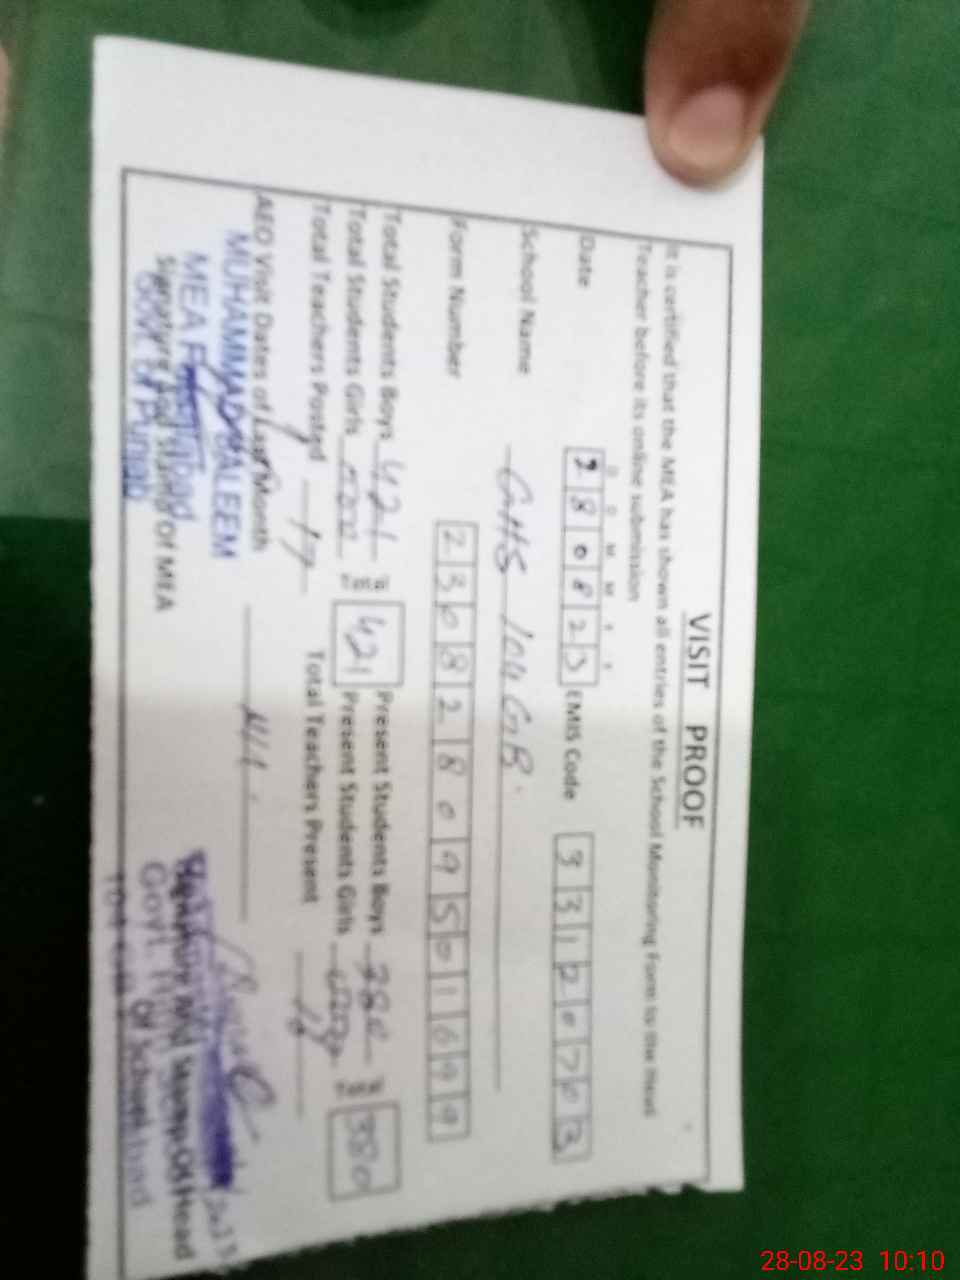 VISIT PROOF
It is certified that the MEA has shown all entries of the School Monitoring Form to the Head
Teacher before its online submission
D D M M Y Y
Date 280823 EMIS Code 33120703
School Name GHS 104 GB
Form Number 23082809501699
Total Students Boys 421 Present Students Boys
Total Students Girls 421 Present Students Girls 380
Total Teachers Posted 17 Total Teachers Present 16
AEO Visit Dates of Last Month Nil
MUHAMMAD SALEEM
MEA
Signature And Stamp Of MEA
Govt. of Punjab
Signature And Stamp Of Head
Of School
Govt.
28-08-23 10:10